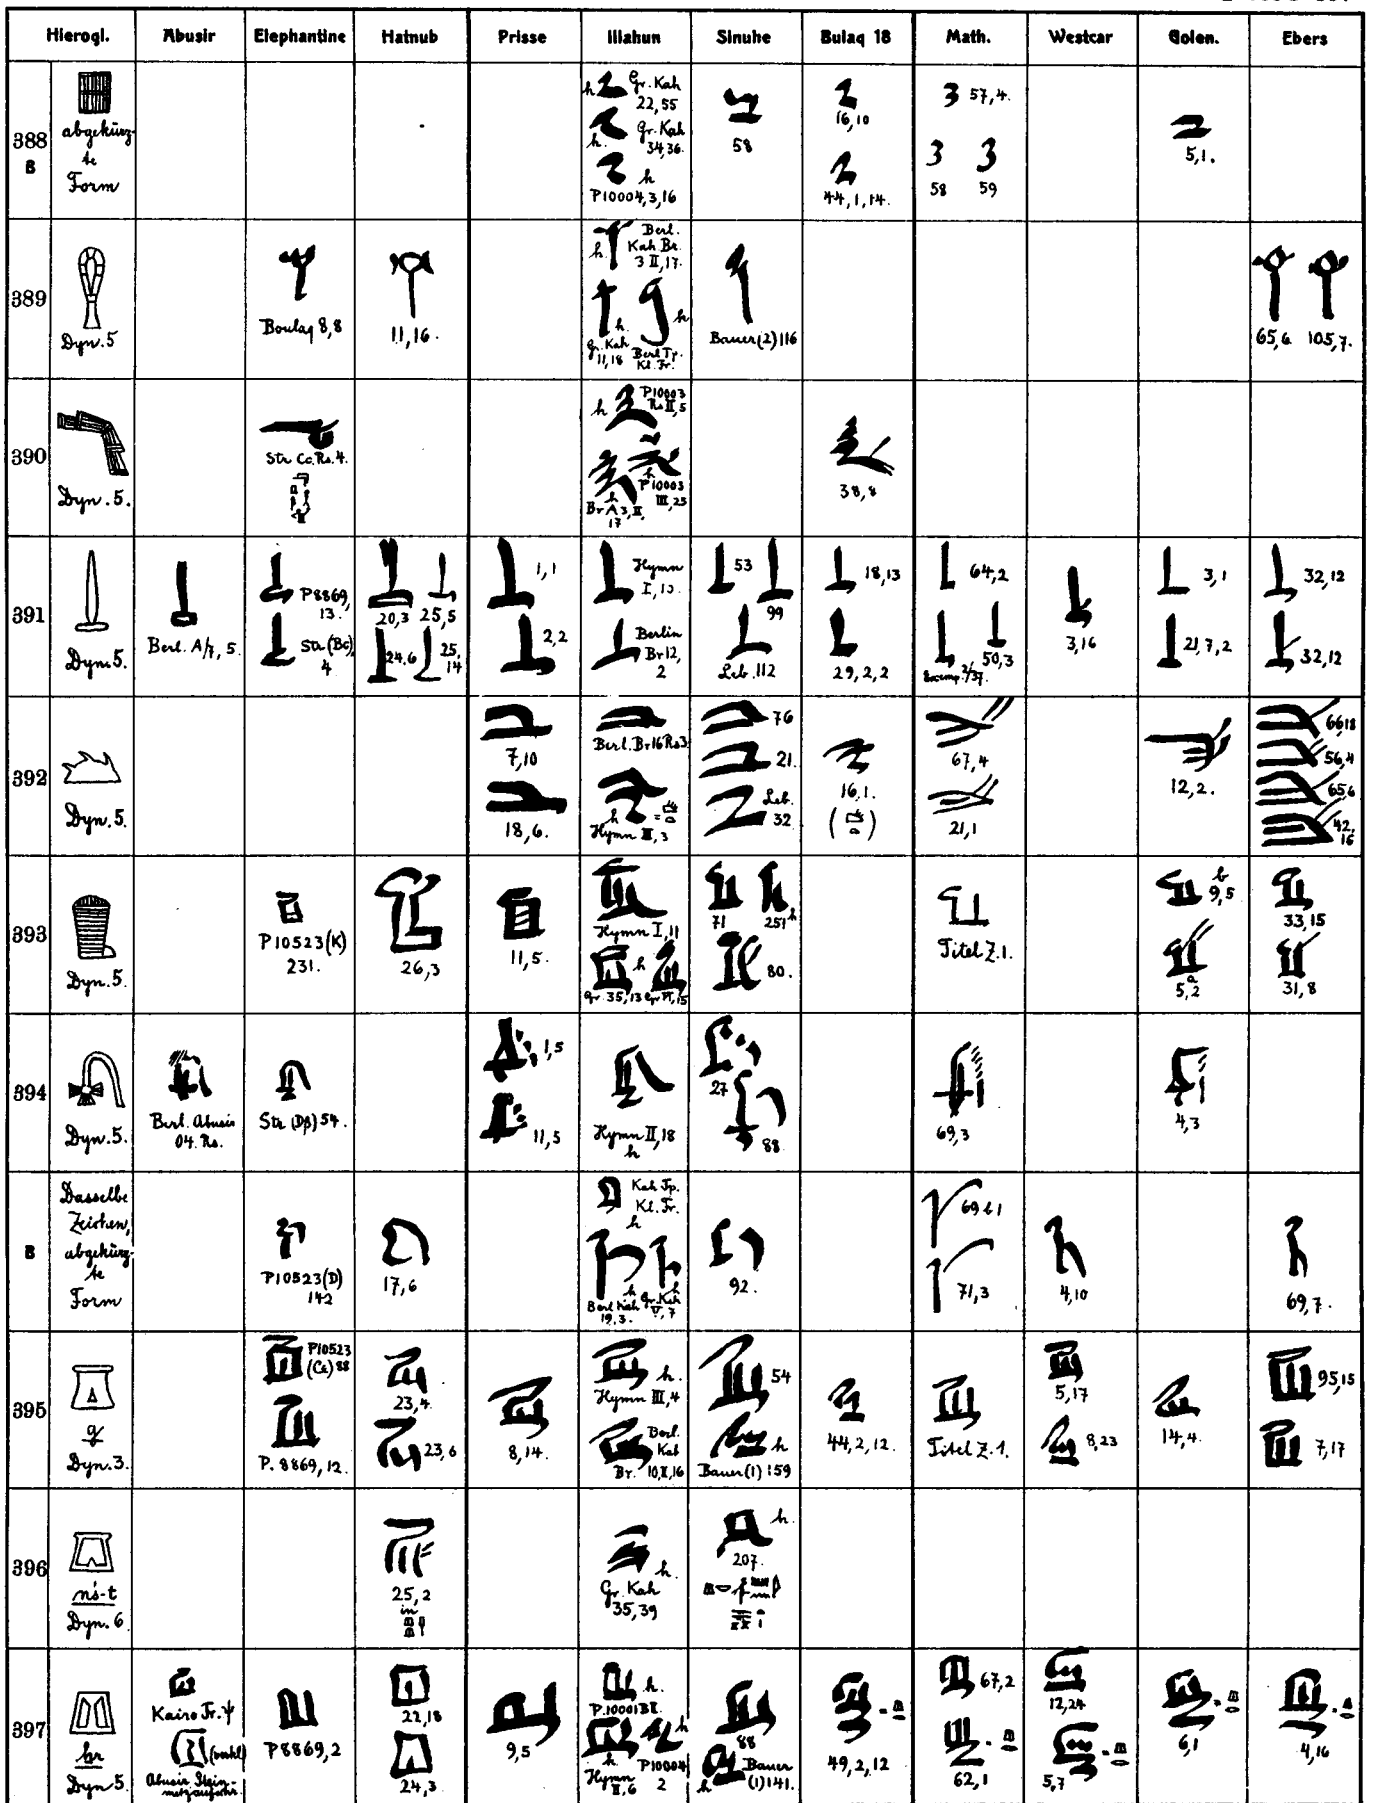 Hierogl. Abusir Elephantine Hatnub Prisse Illahun Sinuhe Bulaq 18 Math. Westcar Golen. Ebers
388
B
abgekürz-
te
Form
h Gr. Kah
22,55
h. Gr. Kah
34,36.
h
P10004,3,16
58
16,10
44,1,14.
57,4.
58 59
5,1.
389
Dyn. 5
Boulaq 8,8
11,16.
h. Berl.
Kah Br.
3 II,17.
h. h
Gr. Kah
11,18
Berl Tp.
Kl. Fr.
Bauer (2) 116
65,6 105,7.
390
Dyn. 5.
Str Cc. Rs. 4.
h P10003
Rs II,5
h
P10003
III,25
h
Br A 3, II,
17
38,8
391
Dyn. 5.
Berl. A/7, 5.
P8869,
13.
Str (Bc)
4
20,3 25,5
24,6 25,
14
1,1
2,2
Hymn
I, 10.
Berlin
Br 12,
2
53
99
Leb. 112
18,13
29,2,2
64,2
50,3
3,16
3,1
21,7,2
32,12
32,12
392
Dyn. 5.
7,10
18,6.
Berl. Br 16 Rs 3
h =
Hymn III,3
76
21.
Leb.
32
16,1.
67,4
21,1
12,2.
66,18
56,4
65,6
42,
16
393
Dyn. 5.
P10523 (K)
231.
26,3
11,5.
Hymn I,11
h
Gr. 35,13
71 251 h
80.
Titel Z. 1.
b
9,5
a
5,2
33,15
31,8
394
Dyn. 5.
Berl. Abusir
04. Rs.
Str (Dβ) 54.
1,5
11,5
Hymn II,18
h
27
88
69,3
4,3
B
Dasselbe
Zeichen,
abgekürz-
te
Form
P10523 (D)
142
17,6
Kah Tp.
Kl. Fr.
h
h h
Berl Kah
19,3.
Gr. Kah
V, 7
92.
69 b 1
71,3
4,10
69,7.
395
g
Dyn. 3.
P10523
(Cs) 88
P. 8869,12.
23,4.
23,6
8,14.
h.
Hymn III,4
Berl.
Kah
Br. 10,II,16
54
h
Bauer (1) 159
44,2,12.
Titel Z. 1.
5,17
8,23
14,4.
95,15
7,17
396
nś-t
Dyn. 6
25,2
in
h.
Gr. Kah
35,39
h.
207.
397
hr
Dyn 5.
Kairo Fr. ψ
Abusir Stein-
metzaufschr.
P8869,2
22,18
24,3
9,5
h.
P.10001 B I.
h h
Hymn
II,6
P10004
2
88
h Bauer
(1) 141.
49,2,12
67,2
62,1
12,24
5,7
6,1
4,16